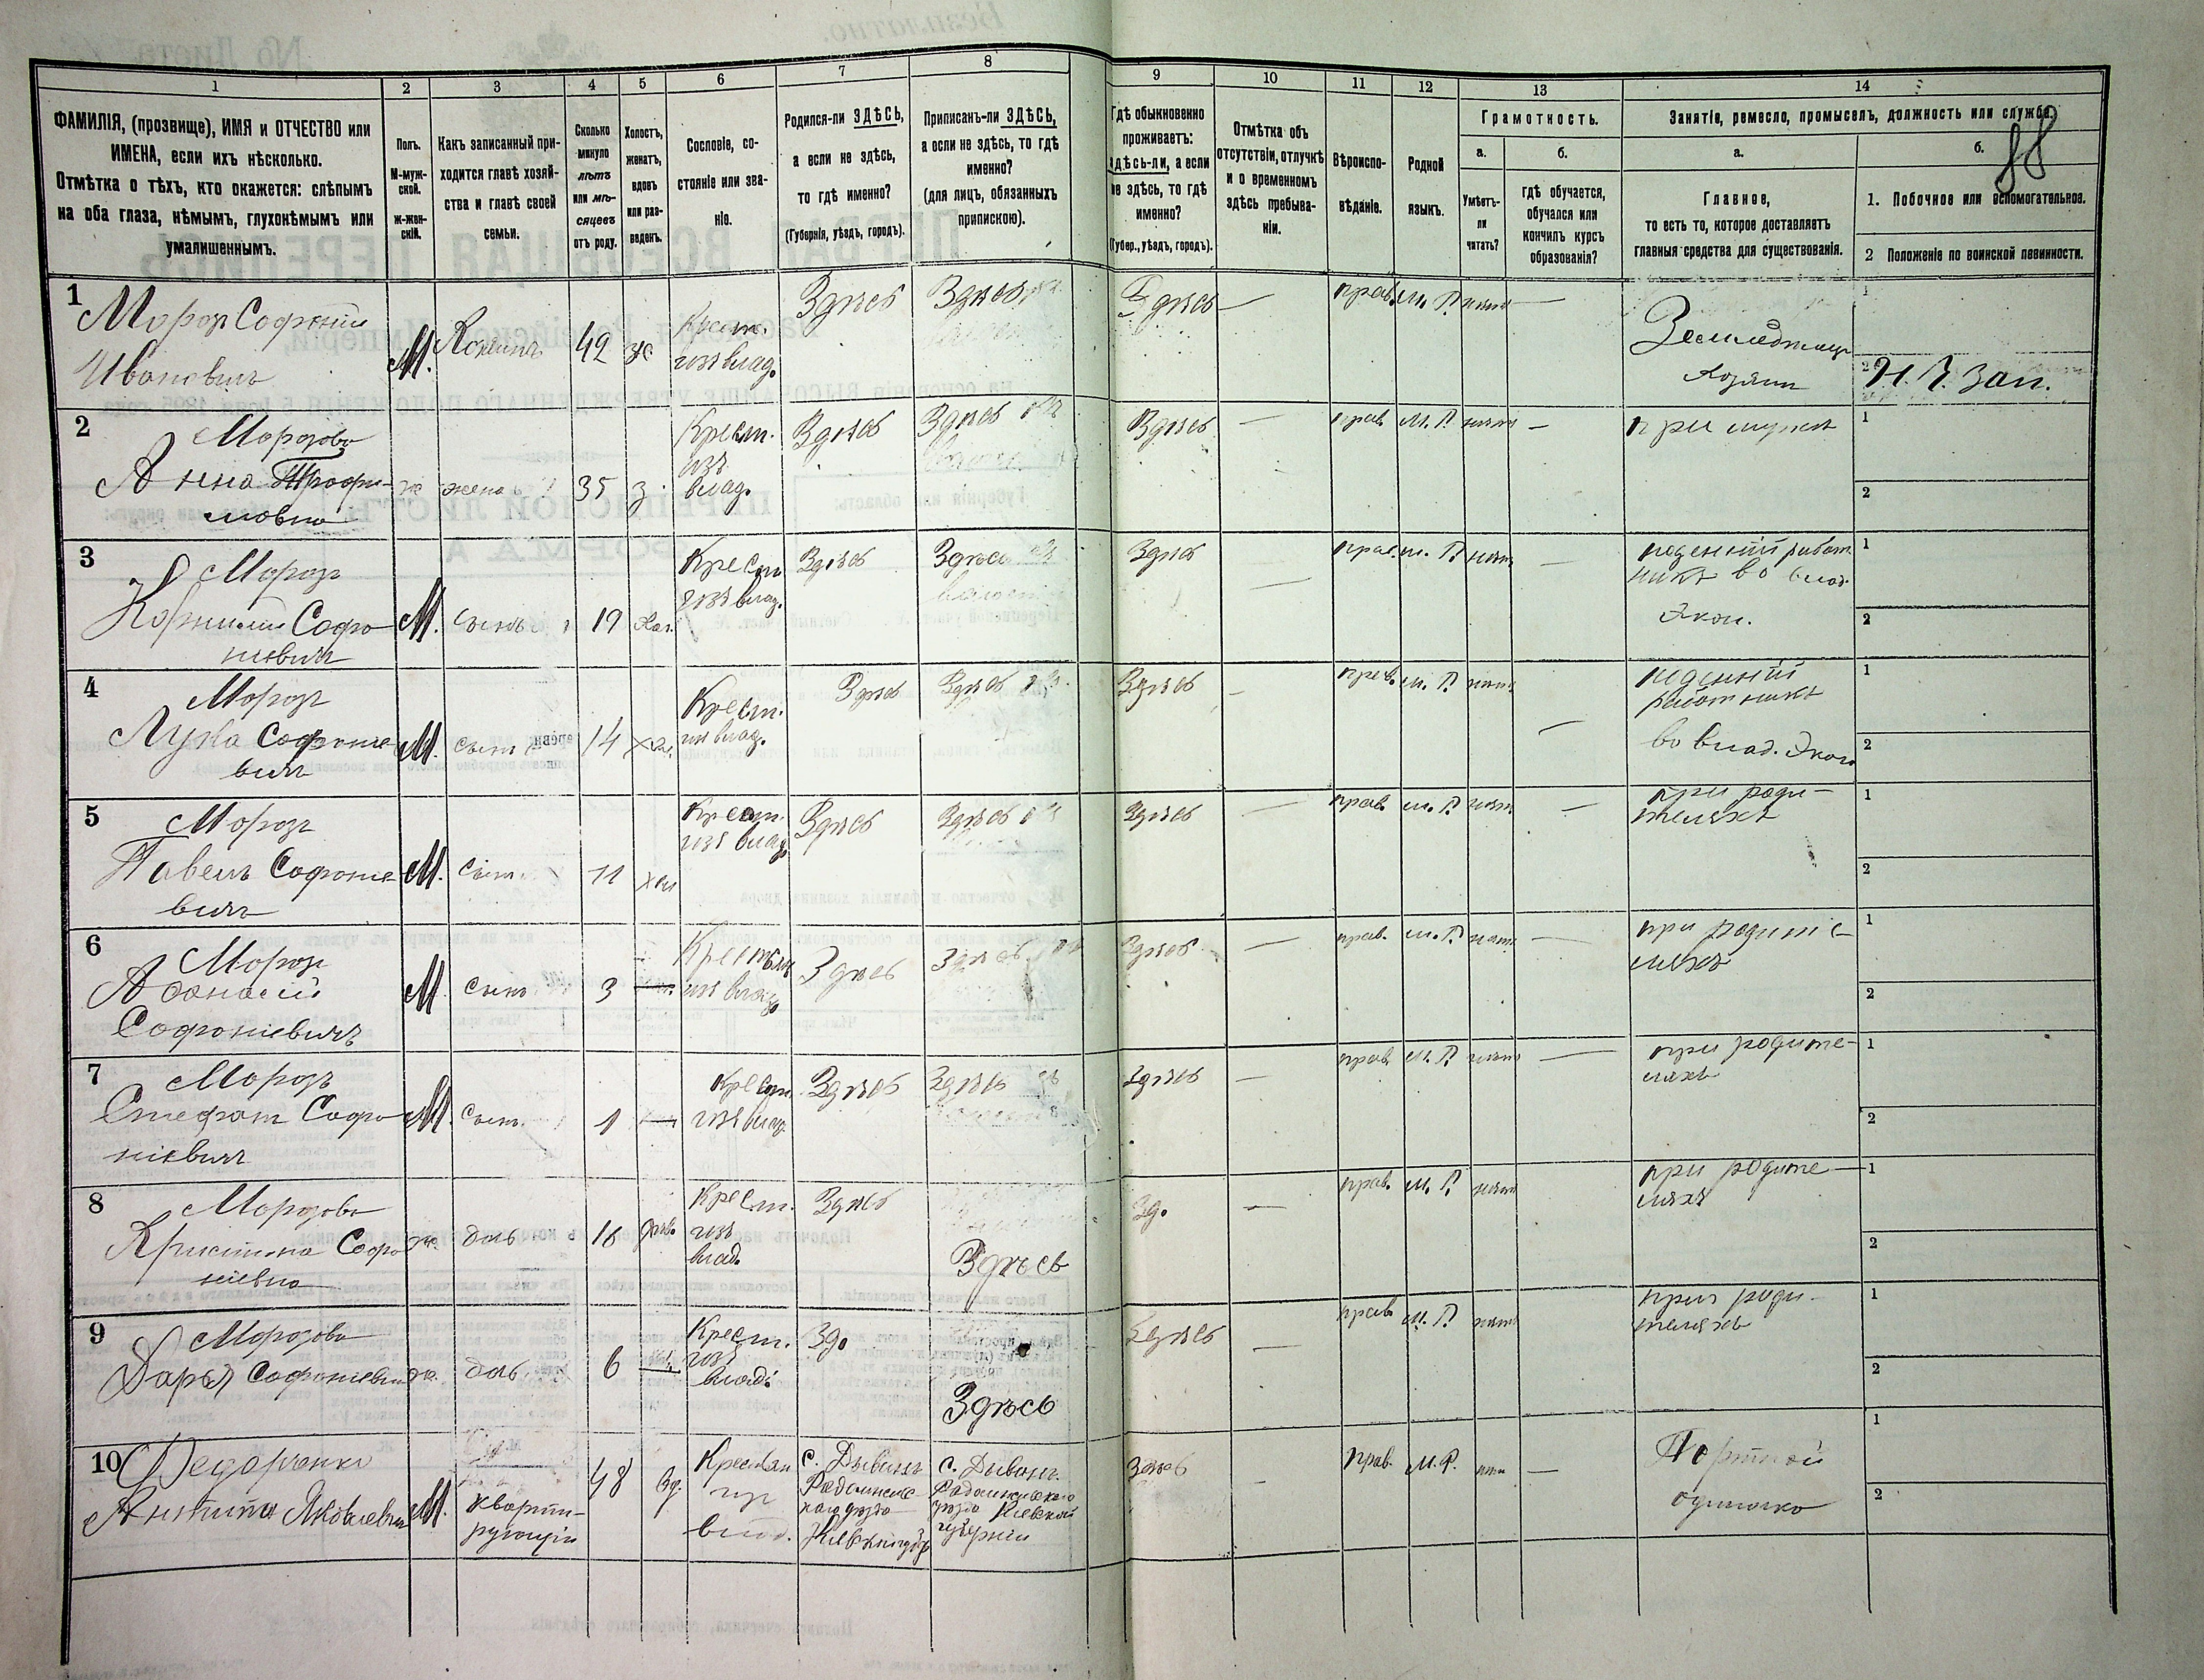 1 2 3 4 5 6 7 8 9 10 11 12 13 14
ФАМИЛІЯ, (прозвище), ИМЯ и ОТЧЕСТВО или
ИМЕНА, если ихъ нѣсколько.
Отмѣтка о тѣхъ, кто окажется: слѣпымъ
на оба глаза, нѣмымъ, глухонѣмымъ или
умалишеннымъ.
Полъ.
М-муж-
ской.
ж-жен-
скій.
Какъ записанный при-
ходится главѣ хозяй-
ства и главѣ своей
семьи.
Сколько
минуло
лѣтъ
или мѣ-
сяцевъ
отъ роду.
Холостъ,
женатъ,
вдовъ
или раз-
веденъ.
Сословіе, со-
стояніе или зва-
ніе.
Родился-ли ЗДѢСЬ,
а если не здѣсь,
то гдѣ именно?
(Губернія, уѣздъ, городъ).
Приписанъ-ли ЗДѢСЬ,
а если не здѣсь, то гдѣ
именно?
(для лицъ, обязанныхъ
припискою).
Гдѣ обыкновенно
проживаетъ:
здѣсь-ли, а если
не здѣсь, то гдѣ
именно?
(Губер., уѣздъ, городъ).
Отмѣтка объ
отсутствіи, отлучкѣ
и о временномъ
здѣсь пребыва-
ніи.
Вѣроиспо-
вѣданіе.
Родной
языкъ.
Грамотность.
а.
Умѣетъ-
ли
читать?
б.
гдѣ обучается,
обучался или
кончилъ курсъ
образованія?
Занятіе, ремесло, промыселъ, должность или служба.
88
а.
Главное,
то есть то, которое доставляетъ
главныя средства для существованія.
б.
1. Побочное или вспомогательное.
2 Положеніе по воинской повинности.
1
Морозъ Софоній
Ивановичъ
М.
Хозяинъ
42
ж
Крест.
изъ влад.
Здѣсь
Здѣсь
Здѣсь
—
прав.
М. Р.
нѣтъ
—
Земледѣлецъ
хозяинъ
1
2
Н. Р. Зап.
2
Морозова
Анна Трофи-
мовна
ж
жена
35
з.
Крест.
изъ
влад.
Здѣсь
Здѣсь
Здѣсь
—
прав.
М. Р.
нѣтъ
—
при мужѣ
1
2
3
Морозъ
Корнилій Софо
ніевичъ
М.
сынъ
19
хол.
Крест.
изъ влад.
Здѣсь
Здѣсь
Здѣсь
—
прав.
М. Р.
нѣтъ
—
поденній работ
никъ во влад.
Экон.
1
2
4
Морозъ
Лука Софоние
вичъ
М.
сынъ
14
хол.
Крест.
изъ влад.
Здѣсь
Здѣсь
Здѣсь
—
прав.
М. Р.
нѣтъ
—
поденній
работникъ
во влад. Экон
1
2
5
Морозъ
Павелъ Софоние
вичъ
М.
сынъ
11
хол
Крест.
изъ влад.
Здѣсь
Здѣсь
Здѣсь
—
прав.
М. Р.
нѣтъ
—
при роди-
теляхъ
1
2
6
Морозъ
Афонасій
Софоніевичъ
М
сынъ
3
изъ влад.
Здѣсь
Здѣсь
Здѣсь
—
прав.
М. Р.
нѣтъ
—
при родите-
ляхъ
1
2
7
Морозъ
Стефан Софо
ніевичъ
М.
сынъ
1
Крест.
изъ влад.
Здѣсь
Здѣсь
Здѣсь
—
прав.
М. Р.
нѣтъ
—
при родите-
ляхъ
1
2
8
Морозова
Кристина Софо
ніевна
ж.
дочь
16
дѣв.
Крест.
изъ
влад.
Здѣсь
Здѣсь
Зд.
—
прав.
М. Р.
нѣтъ
при родите-
ляхъ
1
2
9
Морозова
Дарья Софониевна
ж.
дочь
6
Крест.
изъ
влад.
Зд.
Здѣсь
Здѣсь
—
прав.
М. Р.
нѣтъ
при роди-
теляхъ
1
2
10
Федорченко
Никита Яковлевичъ
М.
кварти-
рующій
48
вд.
Крестьян
изъ
влад.
с. Дывинъ
Радомысльс
каго уѣзда
Кіевской губ
с. Дывинъ
Радомысльскаго
уѣзда Кіевской
губерніи
Здѣсь
—
прав.
М. Р.
—
Портной
одиночка
1
2